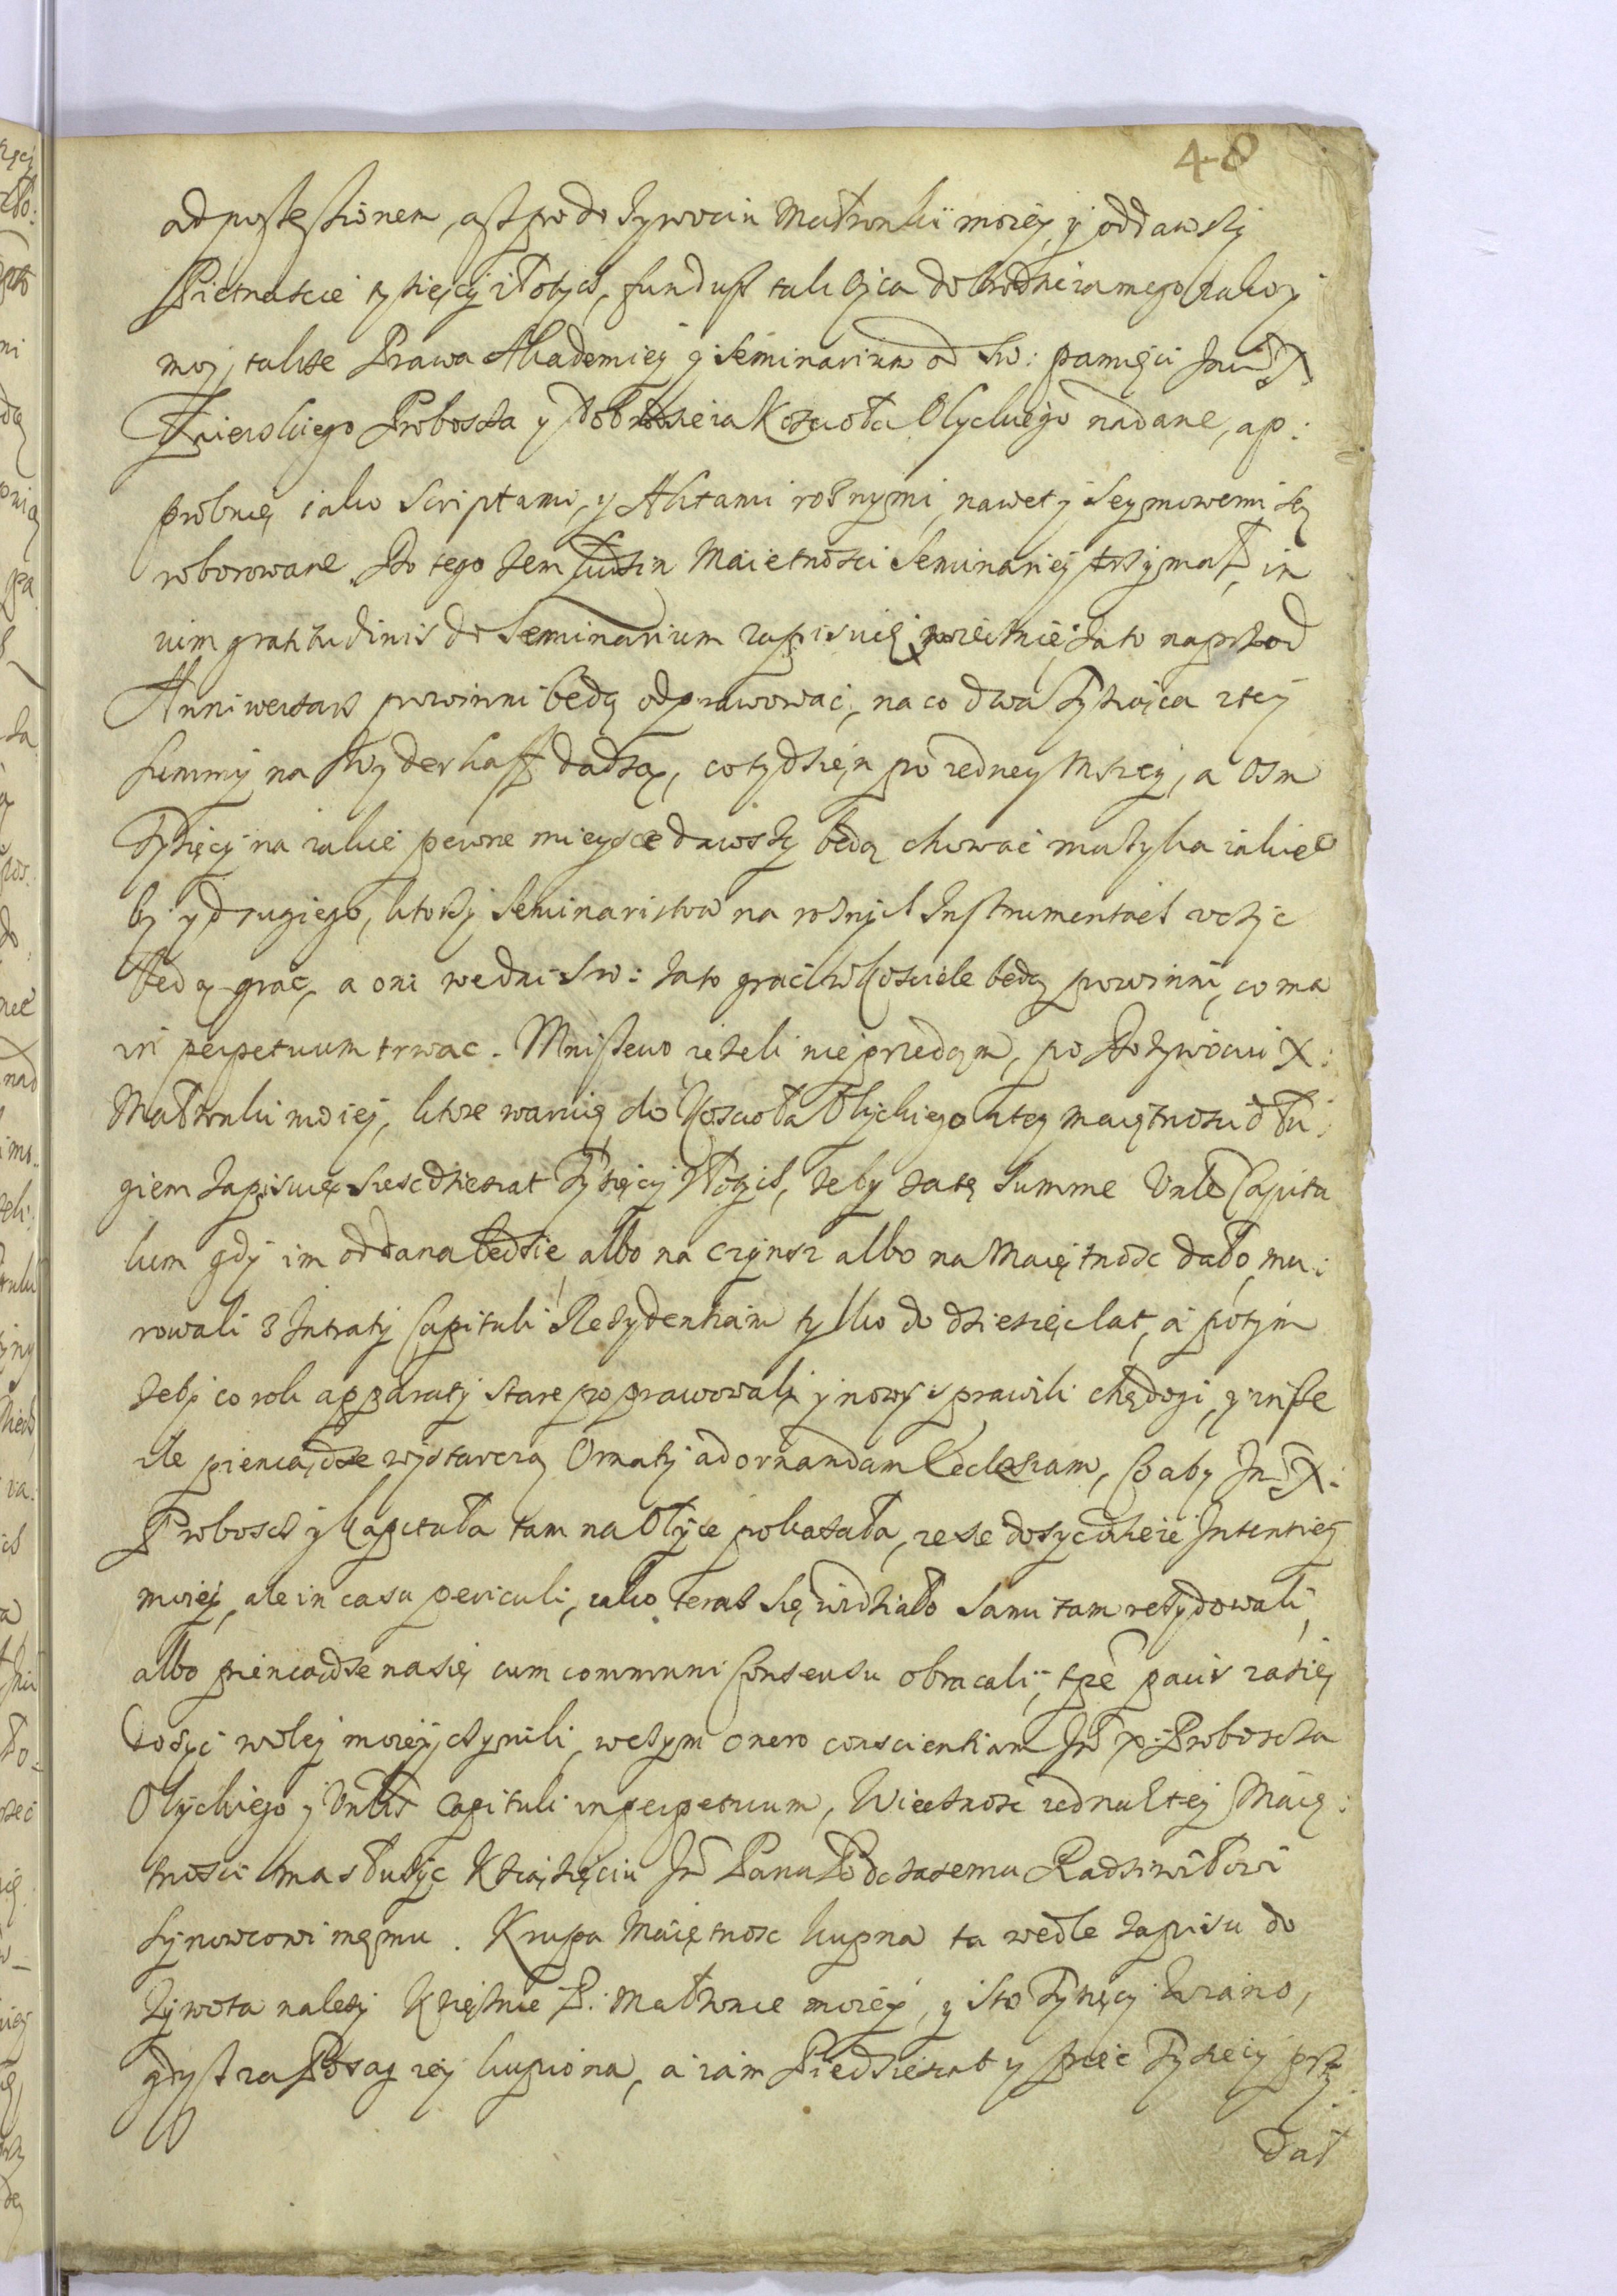 48
ad possessionem, asz po do żywociu Małżonki moiey, y oddawszy
Pietnascie tysięcy złotych, fundusz tak Oyca dobrodzieia mego iako y
moy, takze Prawa Akademiey y Seminarium od sw: pamięci Jm X
Zaierskiego Proboszcza y Dobrodzieia Koscioła Olyckiego nadane, ap:
probuię iako Scriptami, y Aktami roznymi, nawet y Seymowemi są
roborowane. Do tego zem ludzi y Maietnosci Seminariey trzymał, in
vim gratitudinis do Seminarium zapisuię za to naprzod
Anniwersarz powinni będą odprawować, na co dwa Tysiąca z tey
summy na Wyderkaff dadzą, co tydzień po iedney Mszey, a osm
Tysięcy na iakie pewne mieysce dawszy będą chować muzyka iakie
by y drugiego, ktorzy Seminaristow na roznych Instrumentach uczyć
będą grać, a oni we dni sw: za to grać w Kosciele będą powinni, co ma
in perpetuum trwac. Mniszewo iezeli nie przedam, po Dozywociu X:
Małzonki moiey, ktore waruię do Koscioła Olyckiego z tey maiętnosci dłu:
giem zapisuię szescdziesiat Tysięcy Złotych, zeby za tę summe Vnle Capitu
lum gdy im oddana będzie albo na czynsz albo na Maiętnosc dało, mu:
rowali z Intraty Capituli Rezydentiam tylko do dziesięc lat, a potym
zeby co rok apparaty stare poprawowali y nowy sprawili chędogi, y insze
ile pieniądze wystarczą Ornaty ad ornandam Ecclesiam, Co aby Jm X:
Proboszcz y Kapituła tam na Olyce pokazała, ze se dosyc dzieie Intentiey
moiey, ale in casu periculi, iako teraz się widziało sami tam rezydowali,
albo pieniądze na się cum communi Consensu obracali, tpe pacis zasię
dosyć woley moiey czynili, w czym onero conscientiam Jm X: Proboszcza
Olyckiego y Vnlis Capituli in perpetuum, Wiecznosc iednak tey Maię:
tnosci ma słuzyć Ksiązęciu Jm Panu Podczaszemu Radziwiłowi
Synowcowi memu. Krupa Maiętnosc kupna ta wedle zapisu do
Zywota nalezy Xiężnie P. Małzonce moiey, y sto Tysięcy Wiano,
gdysz za Posag iey kupiona, a iam Piedziesiat y pięc Tysiecy przy
dał